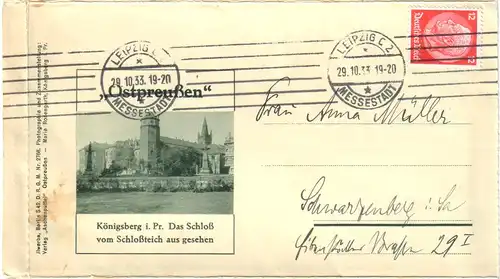 LEIPZIG C 2
29.10.33.19-20
MESSESTADT
LEIPZIG C 2
29.10.33 19-20
MESSESTADT
12 12
Deutsches Reich
„Ostpreußen"
Königsberg i. Pr. Das Schloß
vom Schloßteich aus gesehen
Frau Anna Müller
Schwarzenberg i. Sa
Straße 29 I
Berlin S 42. D. R. G. M. Nr. 2796. Photographie und Zusammenstellung:
Verlag Ostpreußen — Marie Königsberg i. Pr.